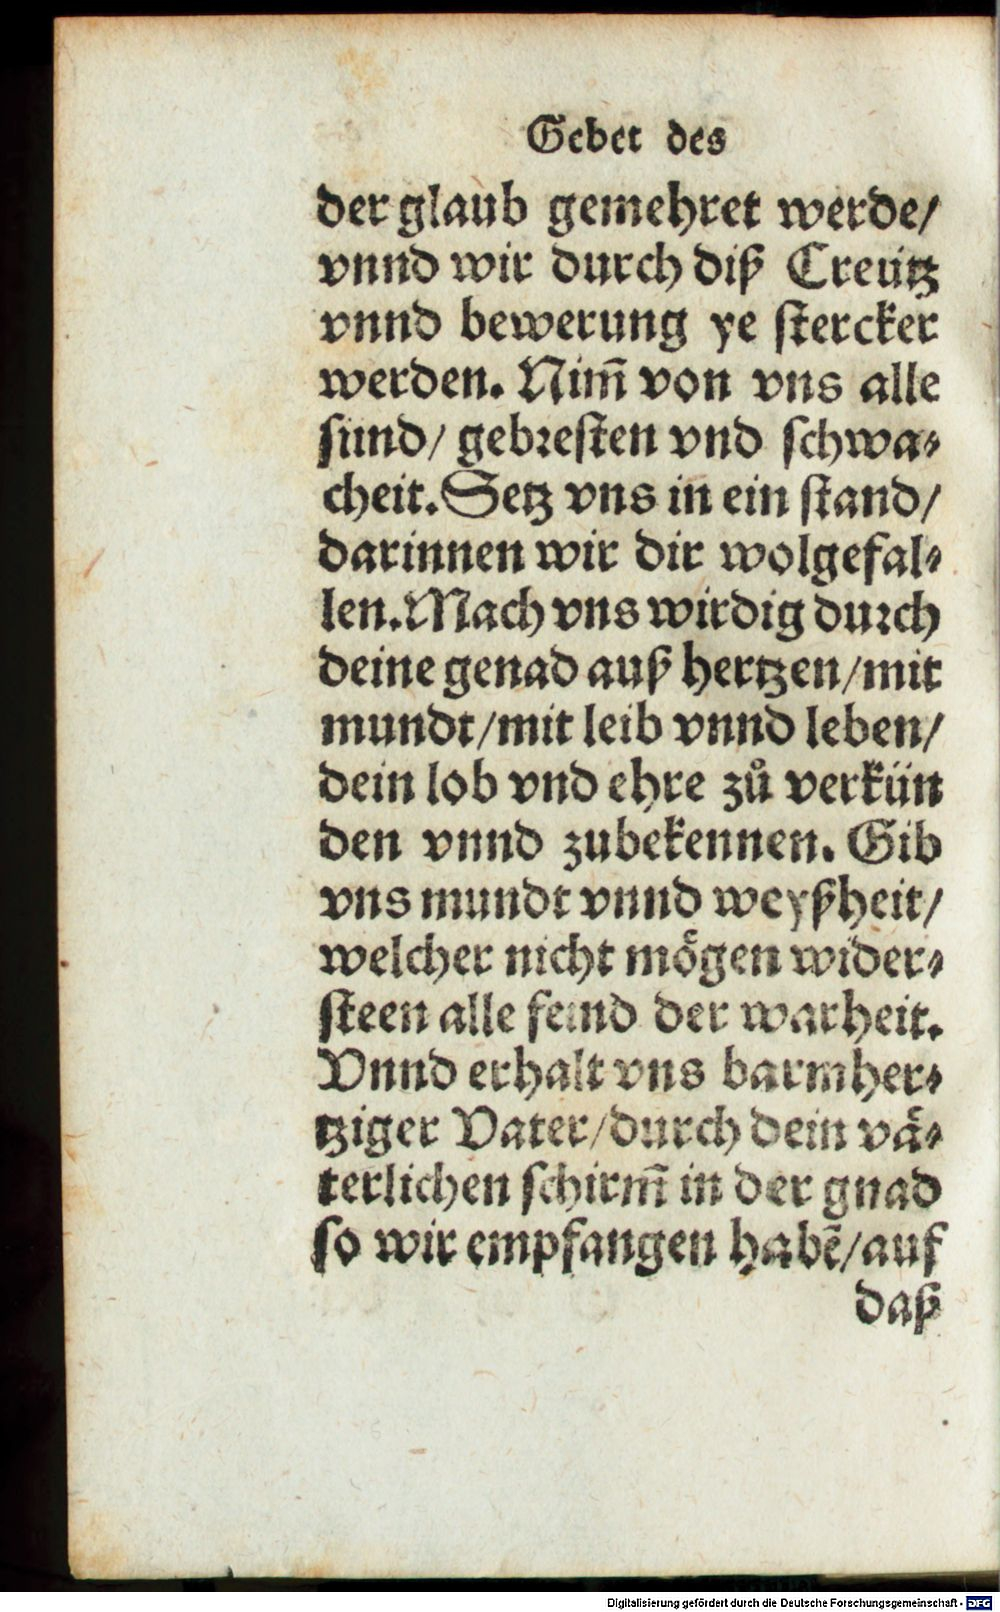 Gebet des
der glaub gemehret werde/
vnnd wir durch diß Creütz
vnnd bewerung ye stercker
werden. Nim̃ von vns alle
sünd/ gebresten vnd schwa-
cheit. Setz vns in ein stand/
darinnen wir dir wolgefal-
len. Mach vns wirdig durch
deine genad auß hertzen/mit
mundt/mit leib vnnd leben/
dein lob vnd ehre zů verkün
den vnnd zubekennen. Gib
vns mundt vnnd weyßheit/
welcher nicht mögen wider-
steen alle feind der warheit.
Vnnd erhalt vns barmher-
tziger Vater/durch dein vä-
terlichen schirm̃ in der gnad
so wir empfangen habẽ/auf
daß
Digitalisierung gefördert durch die Deutsche Forschungsgemeinschaft - DFG